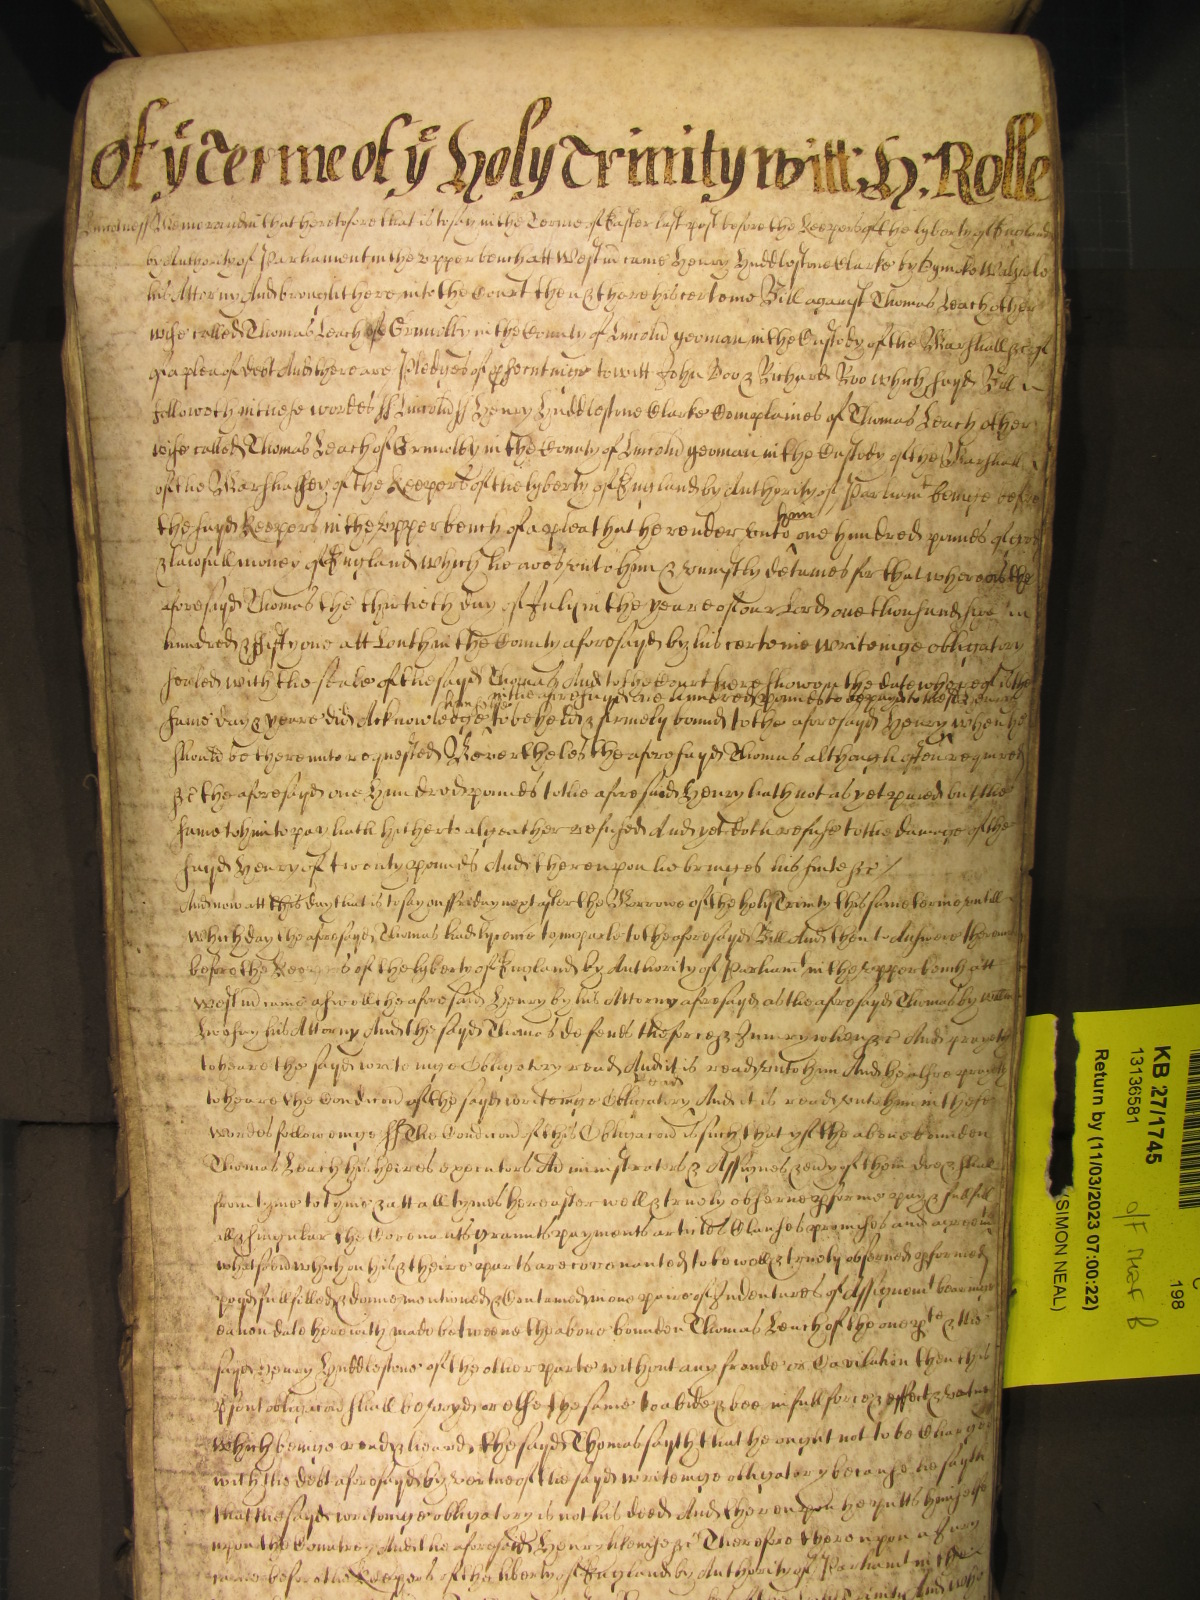 Of yͤ Terme of yͤ Holy Trinity witt: H: Rolle
Memorandū that heretofore that is to say in the Terme of Easter last past before the Keepers of the lyberty of England
by Authority of Parliament in the upper bench att Westm̄ came Henry Huddlestone Clarke by
his Attorny And brought here into the Court then & there his certeine Bill against Thomas Leach other
wise called Thomas Leach of Grimolby in the County of Lincolne yeoman in the Custody of the Marshall &c of
of a plea of debt And there are Pledges of prosecution to witt John Doo & Richard Roo which sayd Bill
followeth in these wordes ss Lincoln ss Henry Huddlestone Clarke Complaines of Thomas Leach other
wise called Thomas Leach of Grimolby in the County of Lincoln yeoman in the Custody of the Marshall
of the Marshalsey of the Keepers of the lyberty of England by Authority of Parliamt beinge before
the sayd Keepers in the upper bench of a plea that he render unto him one hundred pounds of good
& lawfull money of England which he owes unto him & uniustly detaines for that whereas the
aforesayd Thomas the thirtieth day of July in the yeare of our Lord one thousand sixe
hundred & fifty one att Louth in the County aforesayd by his certeine writeinge obligatory
sealed with the seale of the sayd Thomas And to the Court here showen the date whereof is the
in the aforesayd one hundred pounds to be payd to the said Henry
same day & yeare did Acknowledge himselfe to be held & firmely bound to the aforesayd Henry when he
should be thereunto requested Neverthelesthe aforesayd Thomas although often required
&c the aforesayd one hundred pounds to the aforesaid Henry hath not as yet payed but the
same to him to pay hath hitherto alwayes refused And yet doth refuse to the damage of the
sayd Henry of twenty pounds And thereupon he bringes his suite &c /
And now att this day that is to say on Fryday next after the Morrowe of the holy Trinity this same terme untill
which day the aforesayd Thomas had lycence to imparle to the aforesayd Bill And then to Answere thereunto
before the Keepers of the lyberty of England by Authority of Parliamt in the upper bench att
Westm̄ came aswell the aforesaid Henry by his Attorny aforesayd as the aforesayd Thomas by
his Attorny And the sayd Thomas defends the force & Iniury when &c And prayeth
to heare the sayd writeinge Obligatory read And it is read unto him And he also prayeth
to heare the Condicōn of the sayd writeinge Obligatory read And it is read unto him in these
wordes followeinge ss The Condicōn of this Obligacōn is such that yf the above bounden
Thomas Leach his heires executors Administrators & Assignes & every of them doe & shall
from tyme to tyme & att all tymes hereafter well & truely observe pforme pay & fulfill
all & singular the Covenants graunts payments articles Clauses promises and agreemts
whatsoever which on his & theire parts are covenanted to be well & truely observed pformed
payd fulfilled & donne mentioned & Conteined in one paire of Indentures of Assignmt beareinge
eaven date herewith made betweene the above bounden Thomas Leach of the one pte & the
sayd Henry Huddlestone of the other parte without any fraude or Cavilation then this
psent obligacōn shall be voyd or else the same to abide & bee in full force & effect & vertue
Which beinge read & heard the sayd Thomas sayth that he ought not to be Charged
with the debt aforesayd by vertue of the sayd writeinge obligatory because he sayth
that the sayd writeinge obligatory is not his deed And thereupon he putts himselfe
upon the Countrey And the aforesaid Henry likewise &c Therefore thereupon a Jury
before the Keepers of the liberty of England by Authority of Parliamt in the
KB 27/1745
13136581
Return by (11/03/2023 07:00:22)
(SIMON NEAL)
198